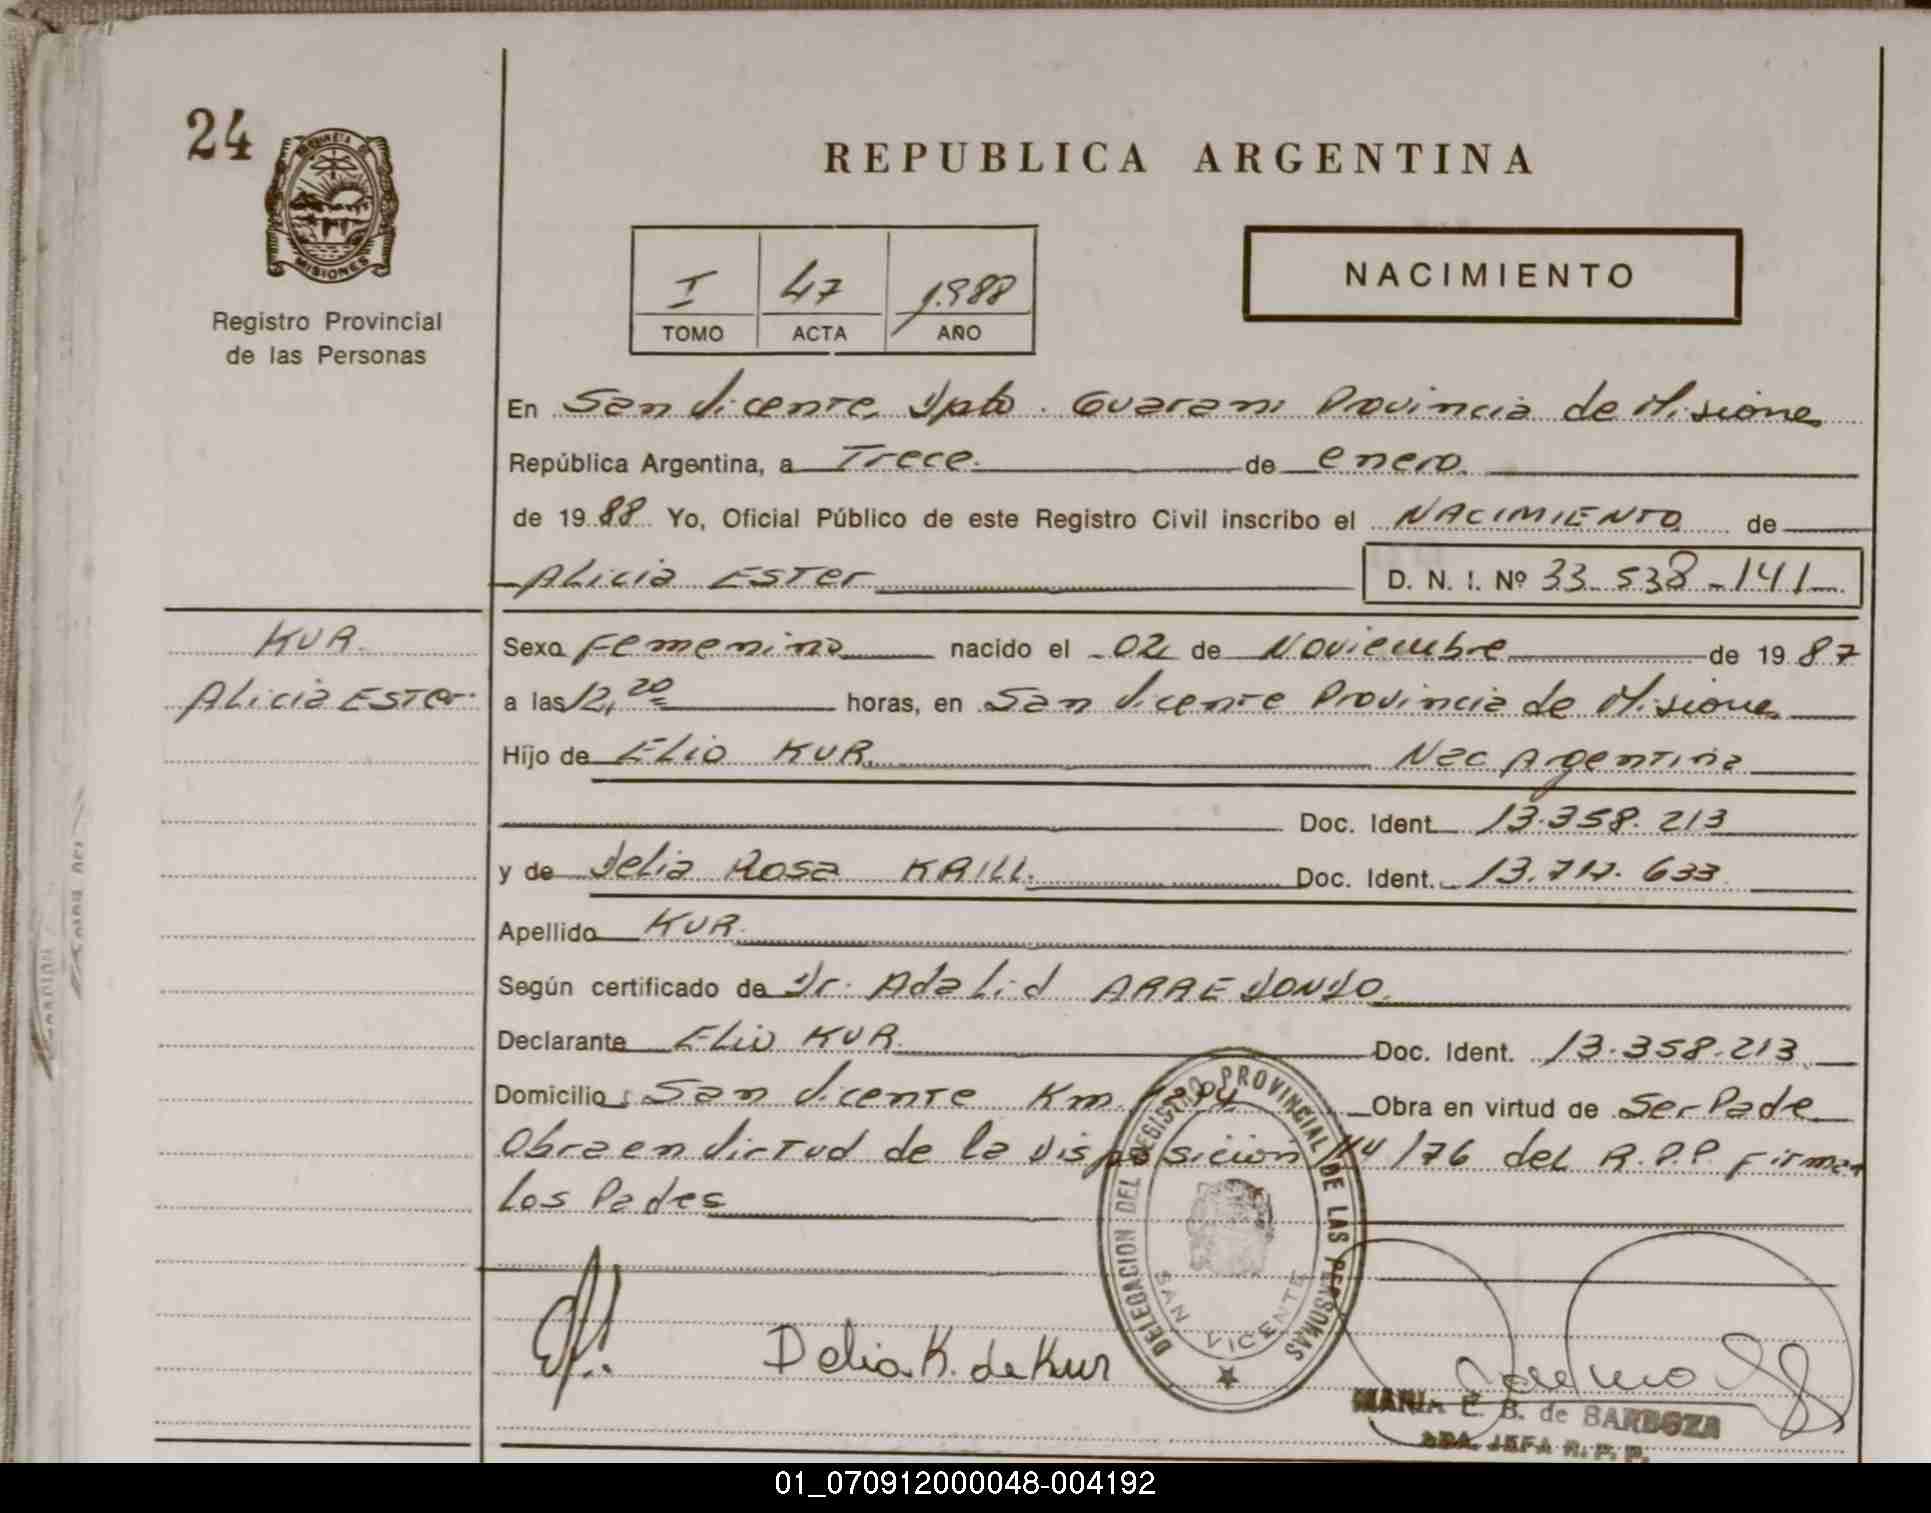 24
REPUBLICA ARGENTINA
MISIONES
Registro Provincial
de las Personas
I 47 1.988
TOMO ACTA AÑO
NACIMIENTO
En San Vicente, Dpto. Guarani Provincia de Misiones
República Argentina, a Trece. de enero.
de 19 88 Yo, Oficial Público de este Registro Civil inscribo el NACIMIENTO de
Alicia ESTer
D. N. I. Nº 33-538-141
KUR.
Alicia ESTer.
Sexo Femenino nacido el 02 de Noviembre de 19 87
a las 12,20 horas, en San Vicente Provincia de Misiones
Hijo de Elio KUR. Nac Argentina
Doc. Ident. 13.358.213
y de Delia Rosa KRILL. Doc. Ident. 13.717.633
Apellido KUR.
Según certificado de Dr. Adalid ARREDONDO.
Declarante Elio KUR. Doc. Ident. 13.358.213
Domicilio: San Vicente Km. Obra en virtud de Ser Padre
Obra en virtud de la disposición 114/76 del R.P.P. Firman
los Padres
Delia K. de Kur
DELEGACION DEL REGISTRO PROVINCIAL DE LAS PERSONAS
SAN VICENTE
MARIA E. B. de BARBOZA
JEFA R. P. P.
01_070912000048-004192